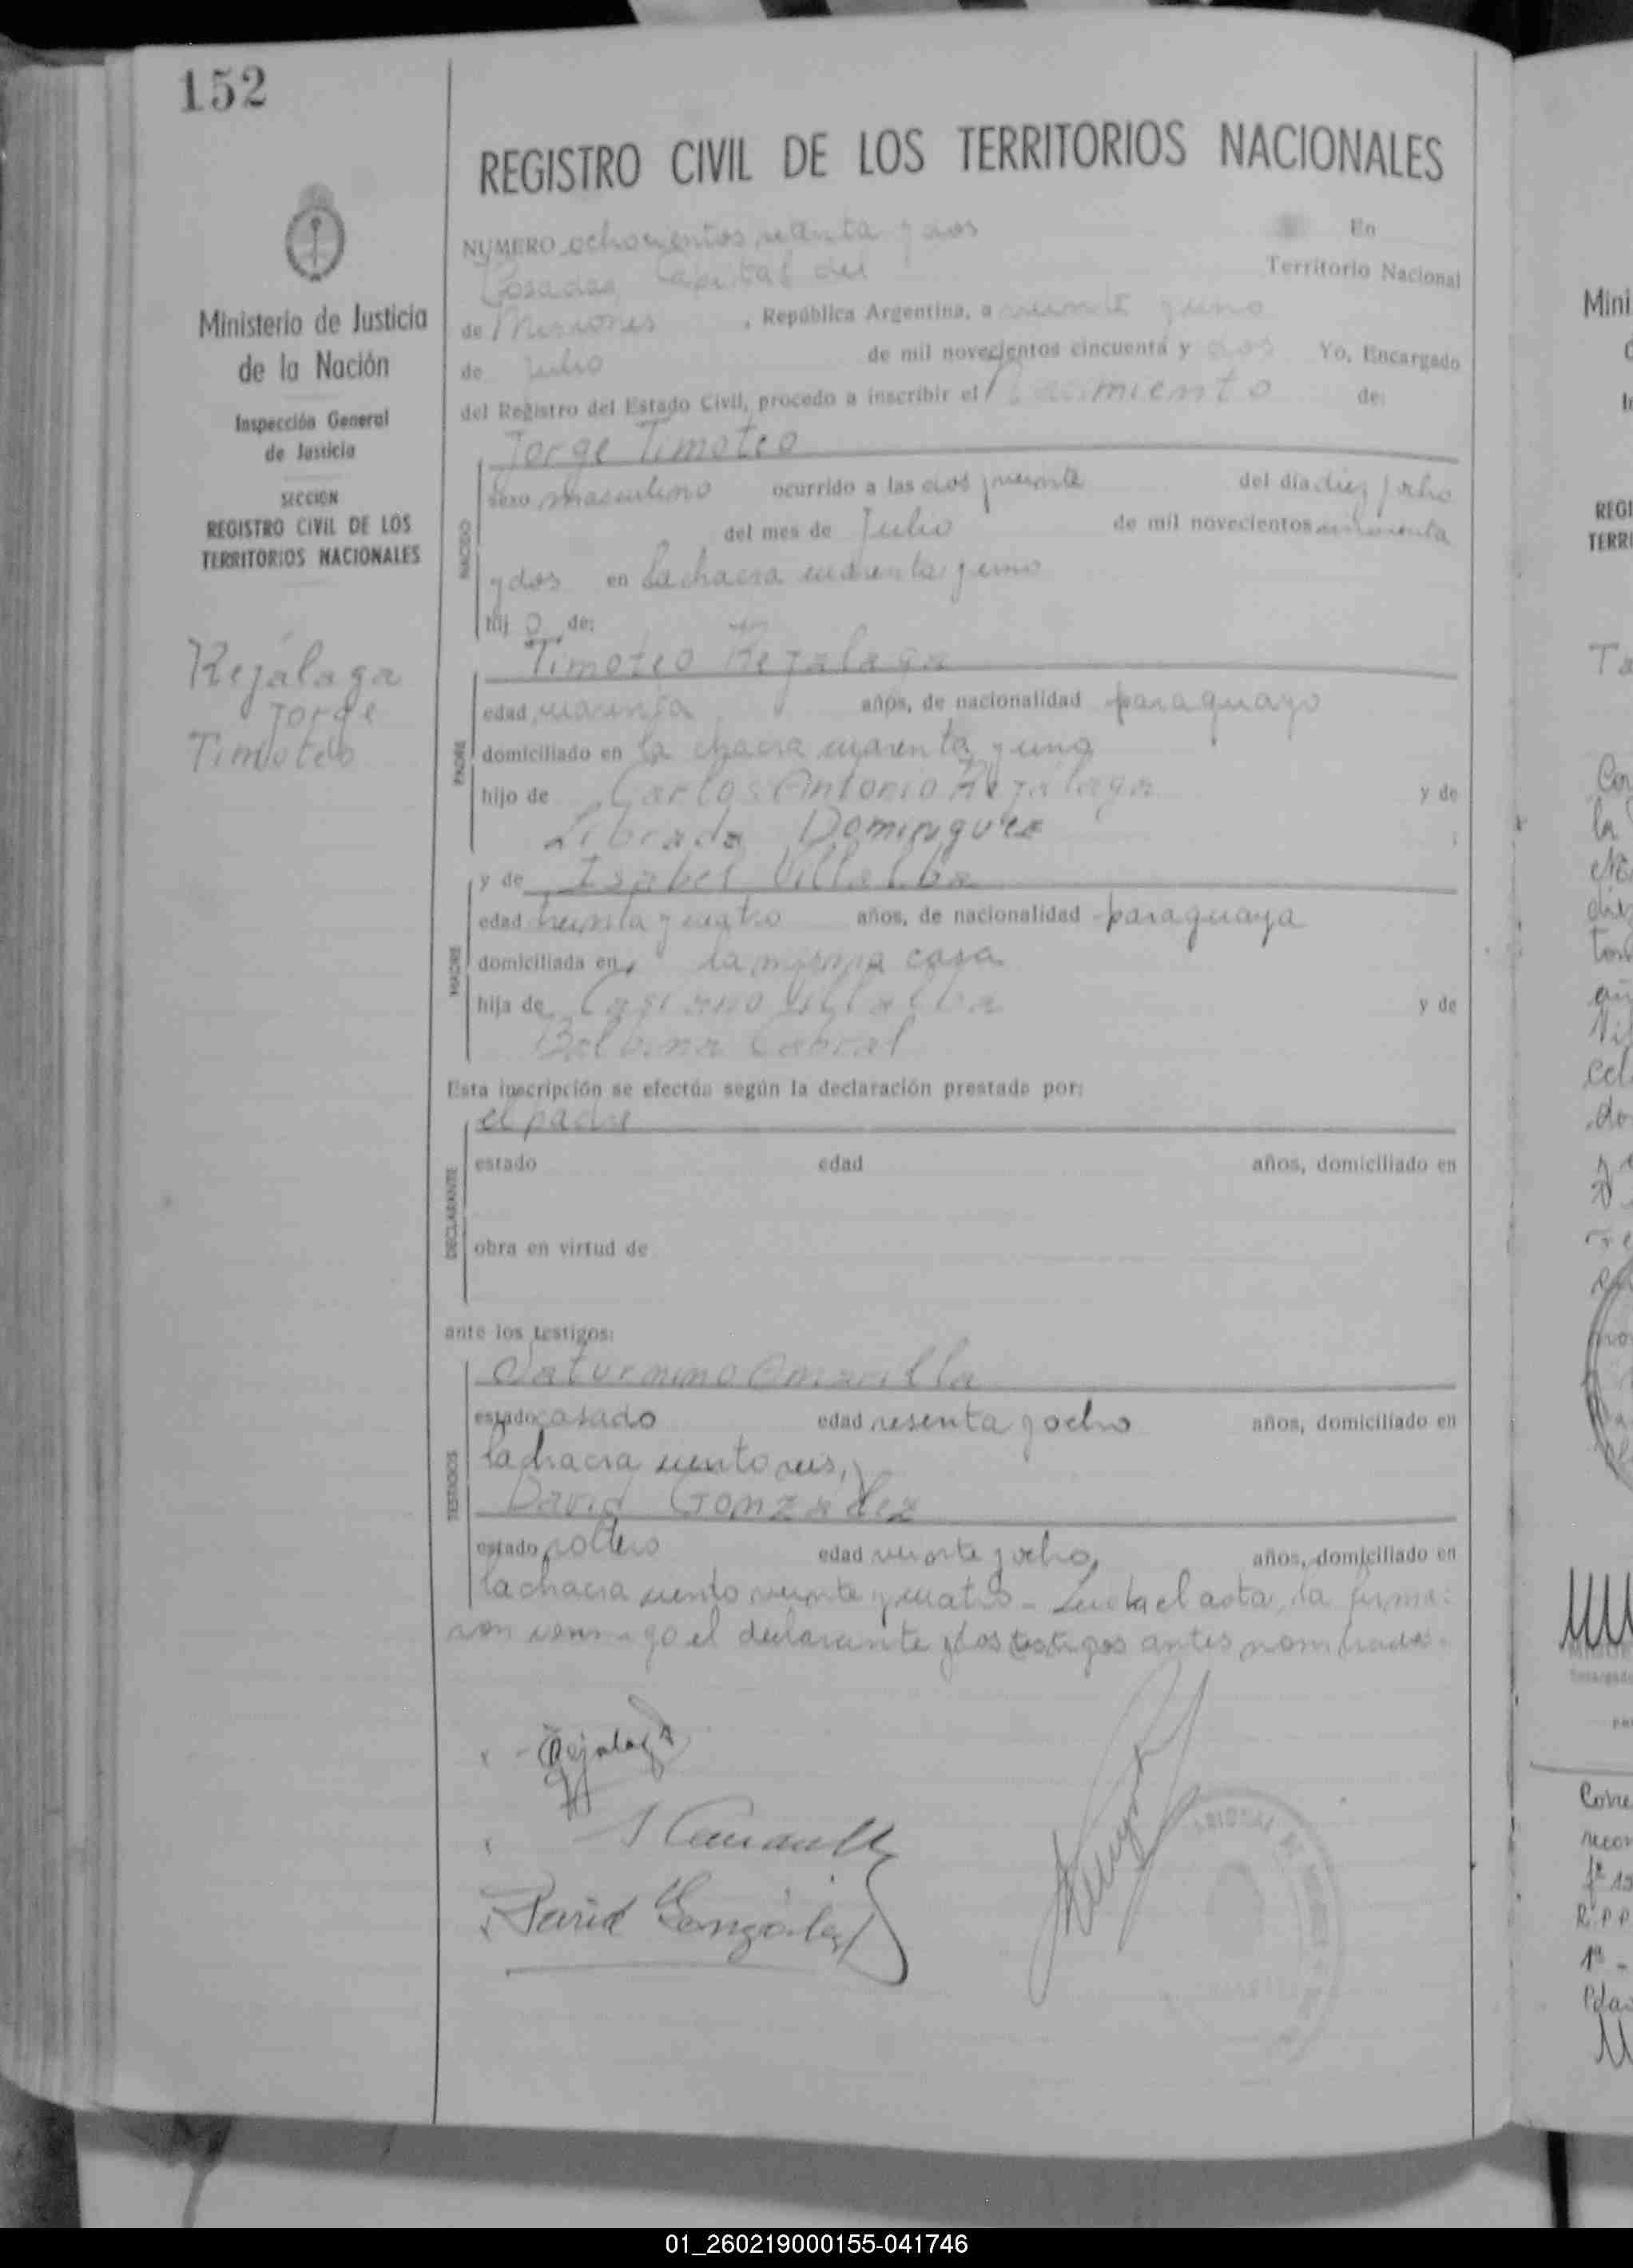 152
REGISTRO CIVIL DE LOS TERRITORIOS NACIONALES
Ministerio de Justicia
de la Nación
Inspección General
de Justicia
SECCION
REGISTRO CIVIL DE LOS
TERRITORIOS NACIONALES
Rejálaga
Jorge
Timoteo
NUMERO ochocientos y dos En
Posadas, Capital del Territorio Nacional
de Misiones, República Argentina, a veinte y uno
de Julio de mil novecientos cincuenta y dos Yo, Encargado
del Registro del Estado Civil, procedo a inscribir el Nacimiento de:
Jorge Timoteo
NACIDO
sexo masculino ocurrido a las dos y veinte del día diez y ocho
del mes de Julio de mil novecientos cincuenta
y dos en la chacra cuarenta y uno
hijo de:
Timoteo Rejálaga
PADRE
edad cuarenta años, de nacionalidad paraguayo
domiciliado en la chacra cuarenta y uno
hijo de Carlos Antonio Rejálaga y de
Librada Dominguez
y de Isabel Villalba
MADRE
edad treinta y cuatro años, de nacionalidad paraguaya
domiciliada en la misma casa
hija de Casiano Villalba y de
Balbina Cabral
Esta inscripción se efectúa según la declaración prestada por:
el padre
DECLARANTE
estado edad años, domiciliado en
obra en virtud de
ante los testigos:
Saturnino Amarilla
TESTIGOS
estado casado edad sesenta y ocho años, domiciliado en
la chacra ciento seis, y
David González
estado soltero edad veinte y ocho, años, domiciliado en
la chacra ciento veinte y cuatro - Leída el acta, la firma-
ron conmigo el declarante y los testigos antes nombrados.
Rejalaga
David González
01_260219000155-041746